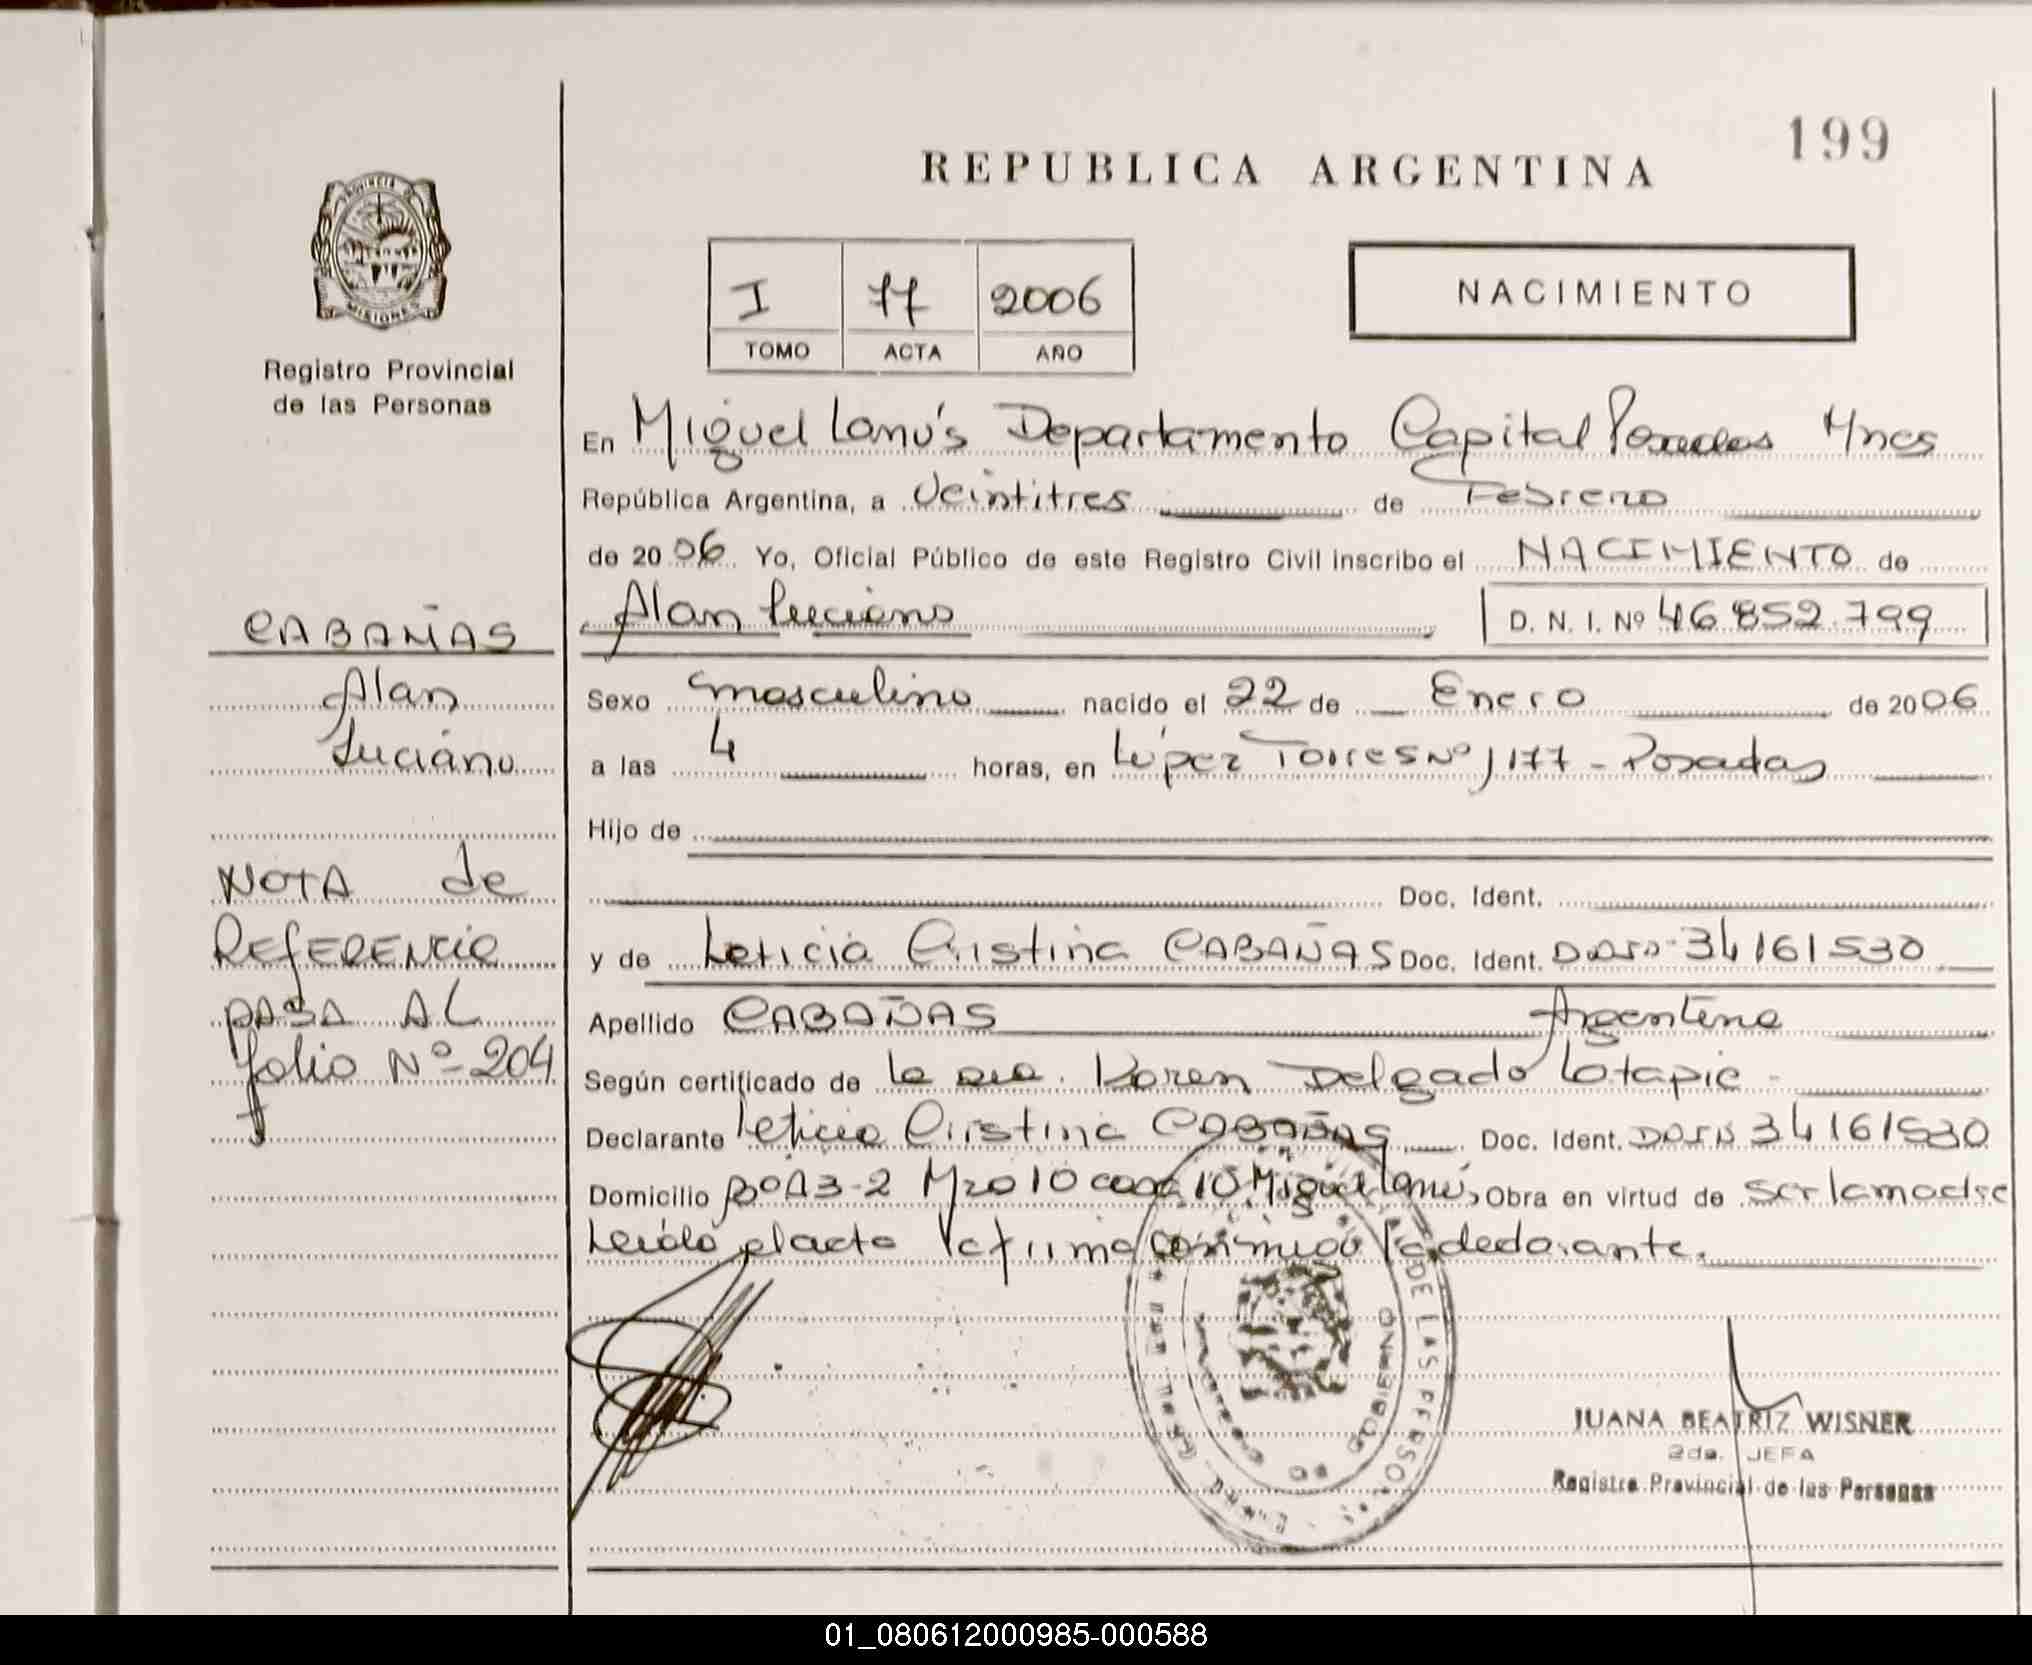 199
REPUBLICA ARGENTINA
PROVINCIA DE
MISIONES
Registro Provincial
de las Personas
I 77 2006
TOMO ACTA AÑO
NACIMIENTO
En Miguel Lanús Departamento Capital Posadas Mnes
República Argentina, a Veintitres de Febrero
de 2006 Yo, Oficial Público de este Registro Civil inscribo el NACIMIENTO de
Alan Luciano D. N. I. Nº 46.852.799
CABAÑAS
Alan
Luciano
Sexo masculino nacido el 22 de Enero de 2006
a las 4 horas, en López Torres Nº 1177 - Posadas
Hijo de
Doc. Ident.
y de Leticia Cristina CABAÑAS Doc. Ident. 34161530
Apellido CABAÑAS Argentina
Según certificado de la Karen Delgado Lotapie
Declarante Leticia Cristina CABAÑAS Doc. Ident. 34161530
Domicilio Mzo 10 casa 10 Miguel Lanús, Obra en virtud de ser la madre
Leída el acta la firma conmigo la declarante.
NOTA de
REFERENCIA
PASA AL
folio Nº 204
DE LAS PERSONAS
GOBIERNO
JUANA BEATRIZ WISNER
2da. JEFA
Registro Provincial de las Personas
01_080612000985-000588